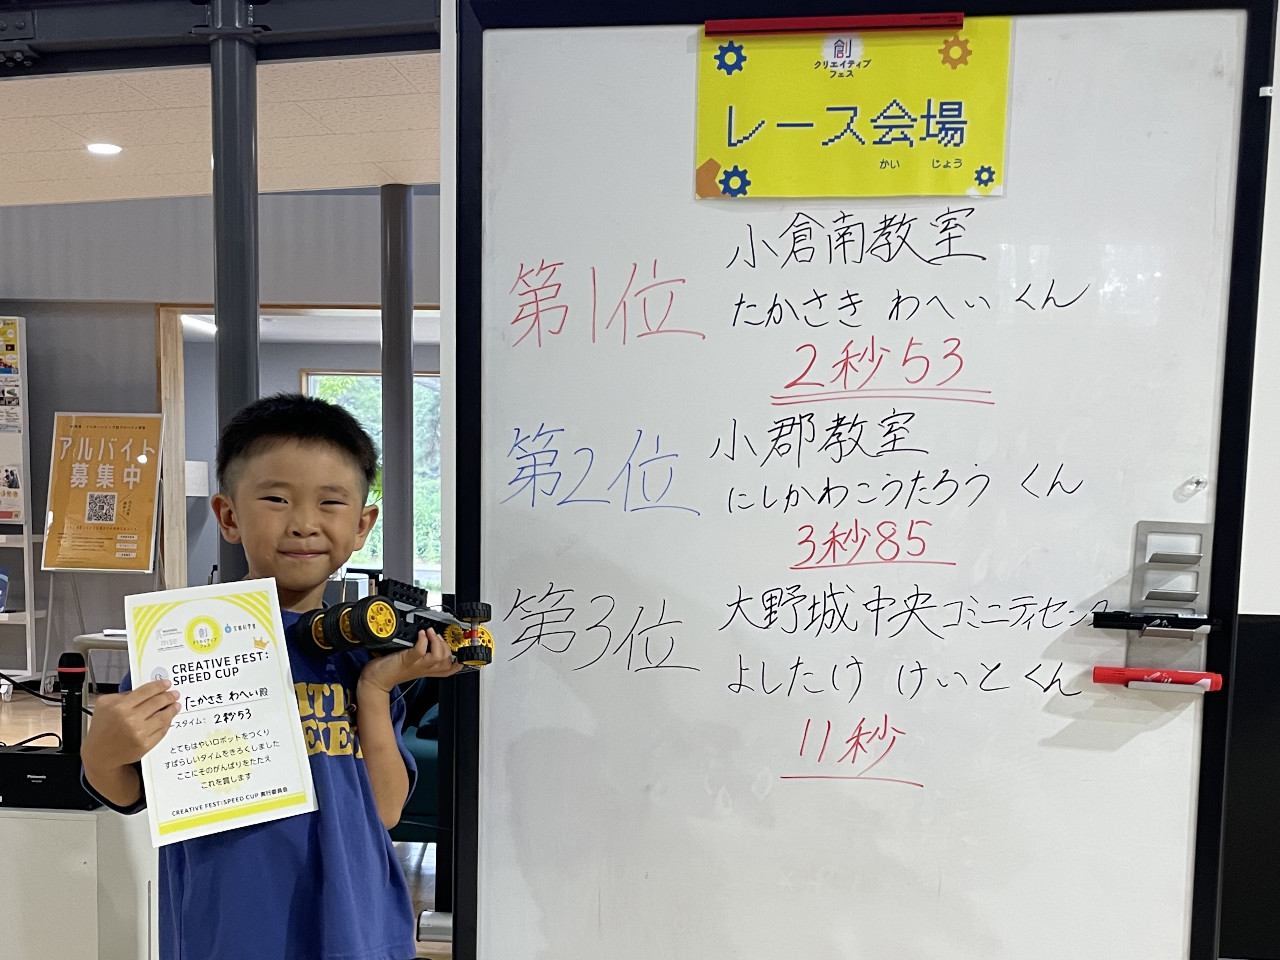 創
クリエイティブ
フェス
レース会場
かい じょう
第1位
小倉南教室
たかさき わへい くん
2秒53
第2位
小郡教室
にしかわこうたろう くん
3秒85
第3位
大野城中央コミニティセンター
よしたけ けいと くん
11秒
アルバイト
募集中
創
クリエイティブ
フェス
CREATIVE FEST:
SPEED CUP
たかさき わへい殿
スタイム: 2秒53
とてもはやいロボットをつくり
すばらしいタイムをきろくしました
ここにそのがんばりをたたえ
これを賞します
CREATIVE FEST:SPEED CUP 実行委員会
Panasonic